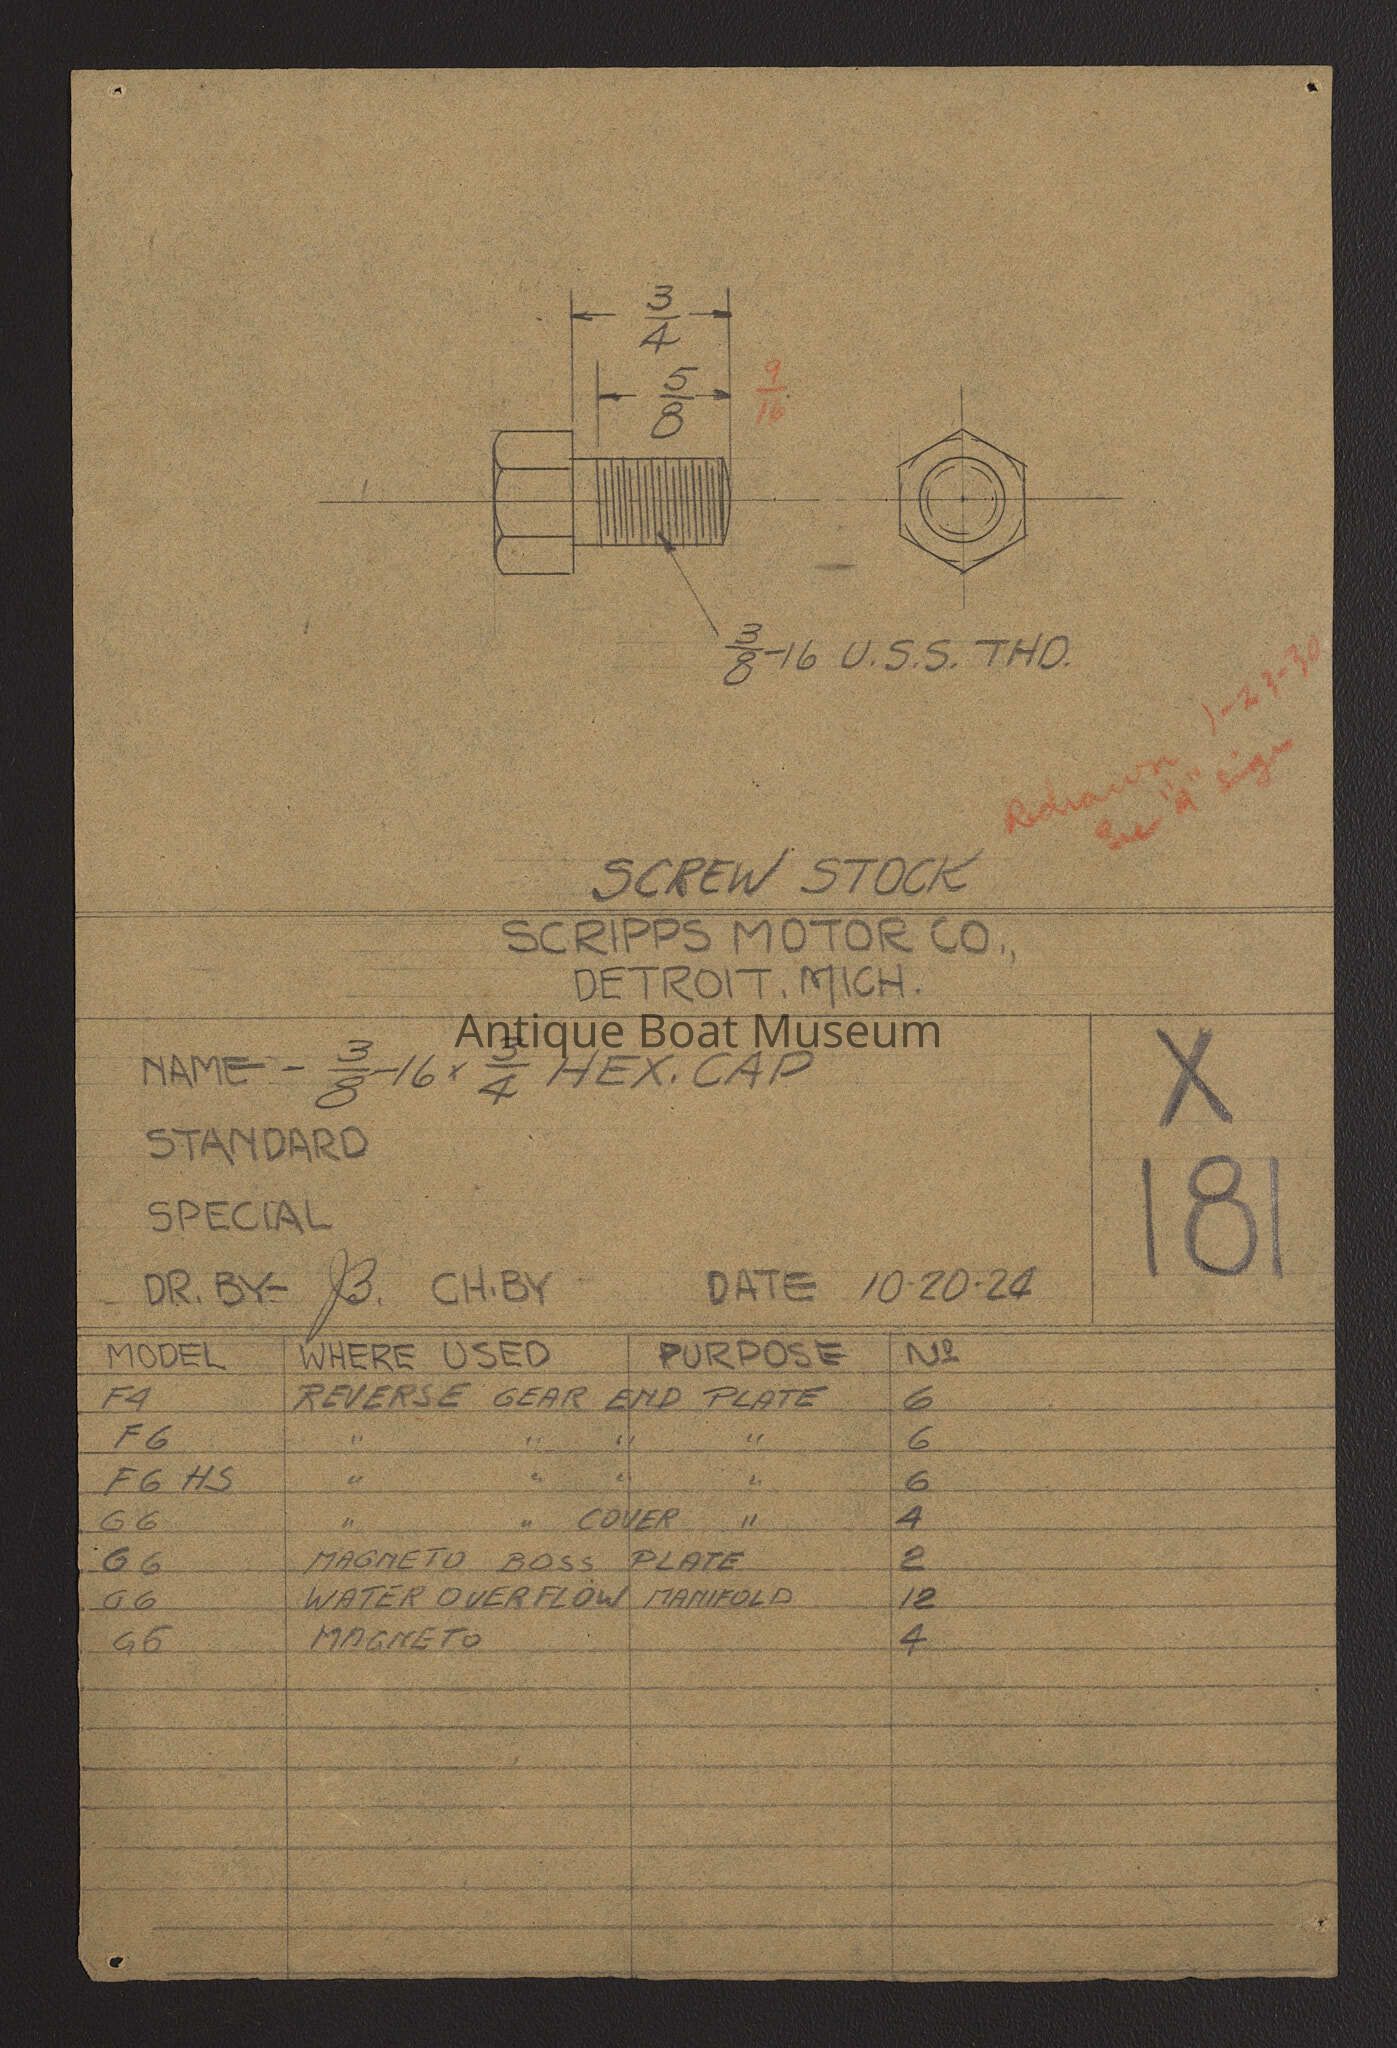 3/4
5/8 9/16
3/8-16 U.S.S. THD.
Redrawn 1-23-30
See "A" Sign
SCREW STOCK
SCRIPPS MOTOR CO.,
DETROIT, MICH.
Antique Boat Museum
NAME - 3/8-16 x 3/4 HEX. CAP
STANDARD
SPECIAL
DR. BY- JB. CH. BY DATE 10-20-24
X
181
MODEL WHERE USED PURPOSE Nº
F4 REVERSE GEAR END PLATE 6
F6 " " " " 6
F6 HS " " " " 6
G6 " " COVER " 4
G6 MAGNETO BOSS PLATE 2
G6 WATER OVERFLOW MANIFOLD 12
G6 MAGNETO 4